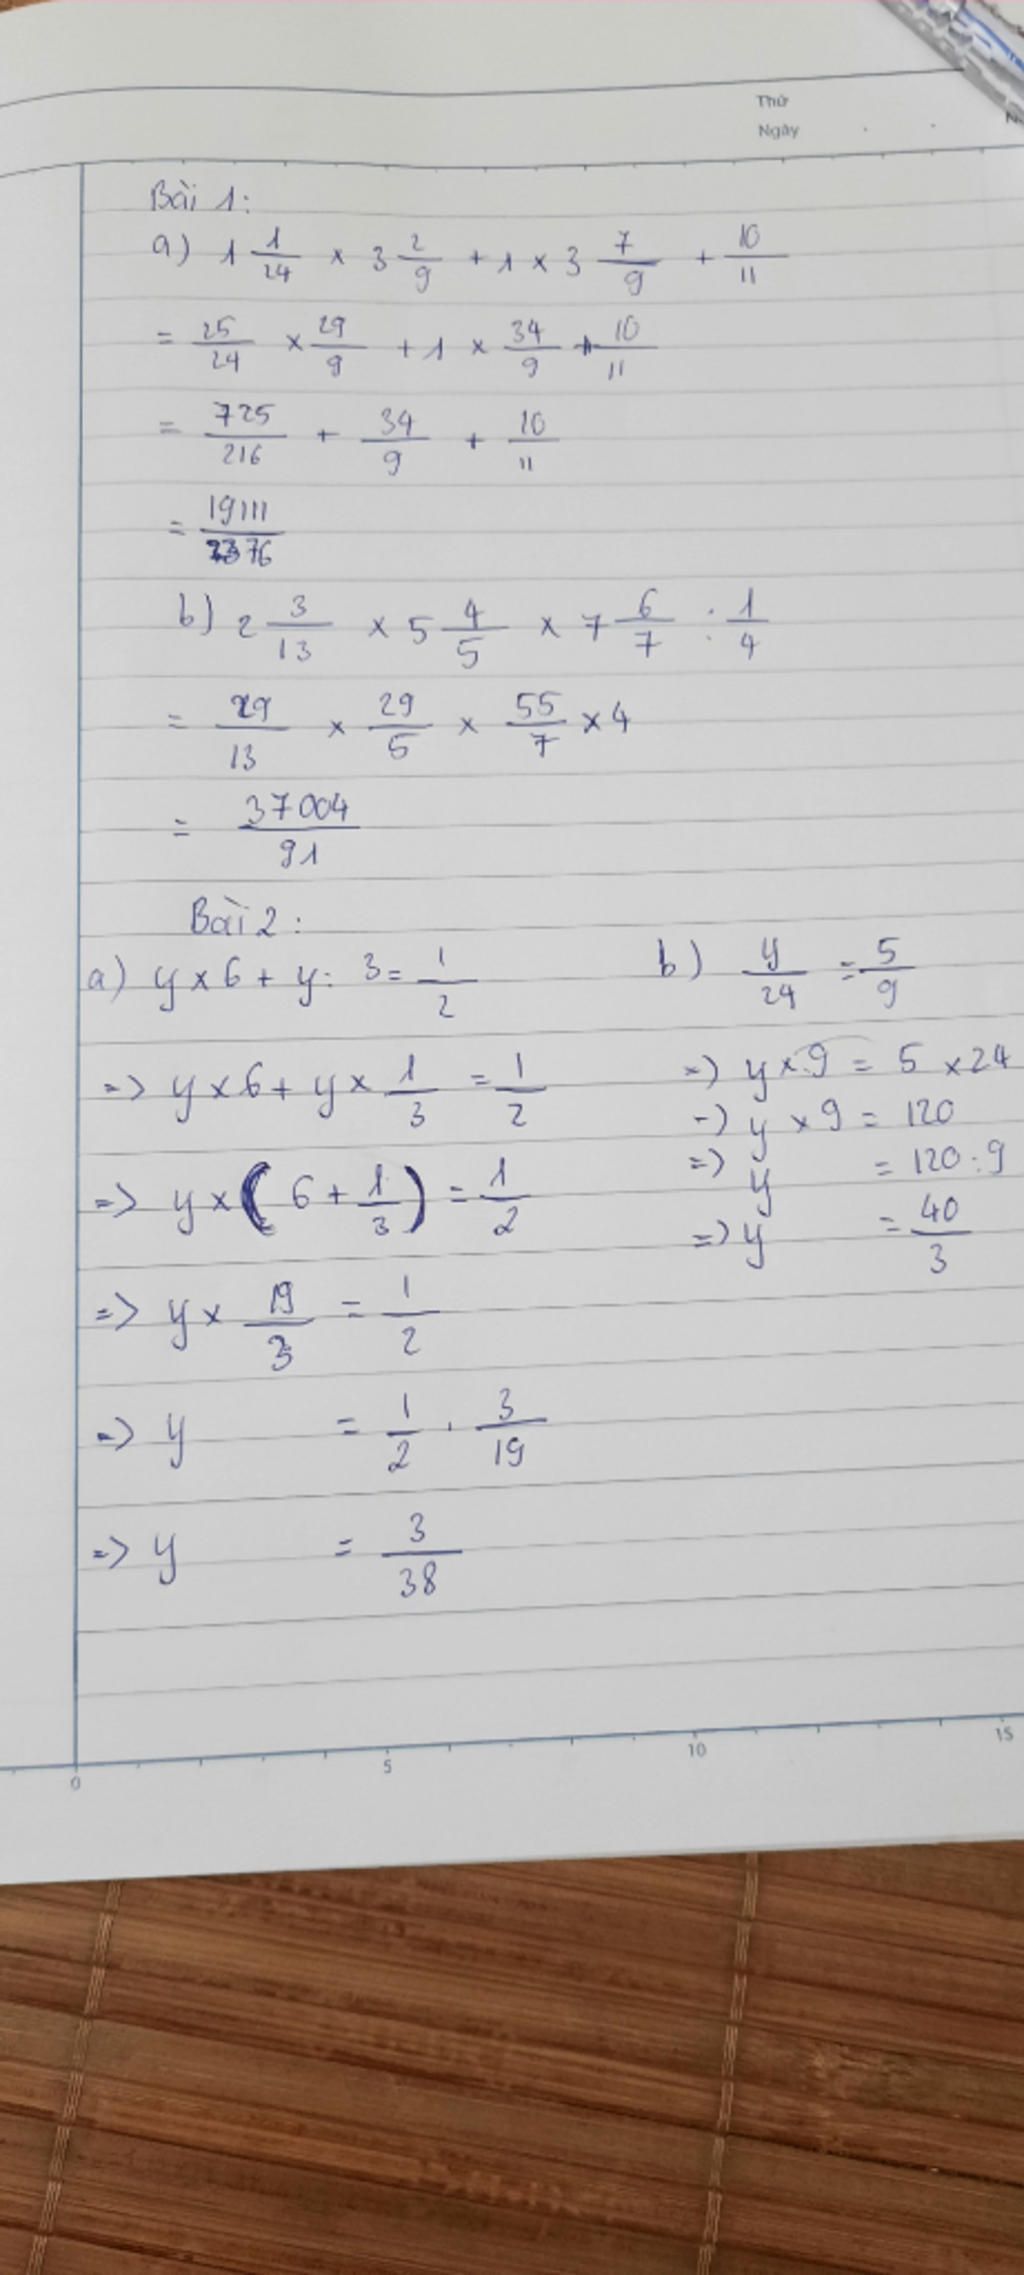 Thứ
Ngày
Bài 1:
a) 1 1/24 × 3 2/9 + 1 × 3 7/9 + 10/11
= 25/24 × 29/9 + 1 × 34/9 + 10/11
= 725/216 + 34/9 + 10/11
= 19111/2376
b) 2 3/13 × 5 4/5 × 7 6/7 : 1/4
= 29/13 × 29/5 × 55/7 × 4
= 37004/91
Bài 2:
a) y × 6 + y : 3 = 1/2
=> y × 6 + y × 1/3 = 1/2
=> y × ( 6 + 1/3 ) = 1/2
=> y × 19/3 = 1/2
=> y = 1/2 . 3/19
=> y = 3/38
b) y/24 = 5/9
=> y × 9 = 5 × 24
=> y × 9 = 120
=> y = 120 : 9
=> y = 40/3
0 5 10 15